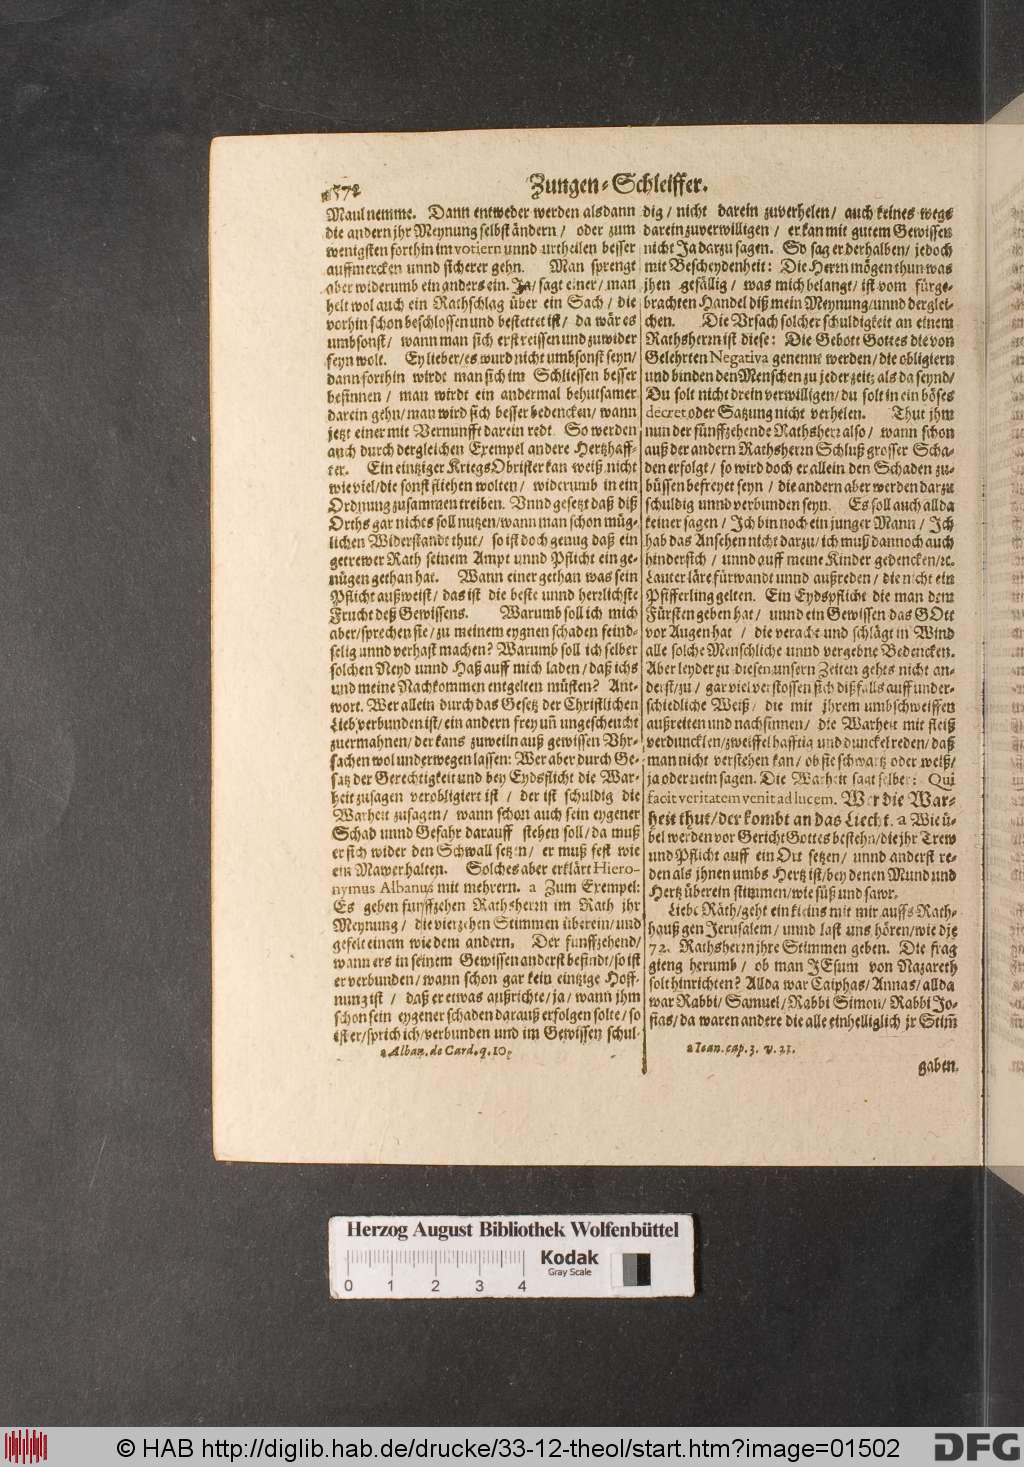 572
Zungen-Schleiffer.
Maul nemme. Dann entweder werden alsdann
die andern jhr Meynung selbst ändern / oder zum
wenigsten forthin im votiern unnd urtheilen besser
auffmercken unnd sicherer gehn. Man sprengt
aber widerumb ein anders ein. Ja / sagt einer / man
helt wol auch ein Rathschlag über ein Sach / die
vorhin schon beschlossen und bestettet ist / da wär es
umbsonst / wann man sich erst reissen und zuwider
seyn wolt. Ey lieber / es wurd nicht umbsonst seyn /
dann forthin wirdt man sich im Schliessen besser
besinnen / man wirdt ein andermal behutsamer
darein gehn / man wird sich besser bedencken / wann
jetzt einer mit Vernunfft darein redt. So werden
auch durch dergleichen Exempel andere Hertzhaff-
ter. Ein eintziger Kriegs Obrister kan weiß nicht
wie viel / die sonst fliehen wolten / widerumb in ein
Ordnung zusammen treiben. Vnnd gesetzt daß diß
Orths gar nichts soll nutzen / wann man schon müg-
lichen Widerstandt thut / so ist doch genug daß ein
getrewer Rath seinem Ampt unnd Pflicht ein ge-
nügen gethan hat. Wann einer gethan was sein
Pflicht außweist / das ist die beste unnd herzlichste
Frucht deß Gewissens. Warumb soll ich mich
aber / sprechen sie / zu meinem eygnen schaden feind-
selig unnd verhast machen? Warumb soll ich selber
solchen Neyd unnd Haß auff mich laden / daß ichs
und meine Nachkommen entgelten müsten? Ant-
wort. Wer allein durch das Gesetz der Christlichen
Lieb verbunden ist / ein andern frey uñ ungescheucht
zuermahnen / der kans zuweiln auß gewissen Vhr-
sachen wol underwegen lassen: Wer aber durch Ge-
satz der Gerechtigkeit und bey Eydspflicht die War-
heit zusagen verobligiert ist / der ist schuldig die
Warheit zusagen / wann schon auch sein eygener
Schad unnd Gefahr darauff stehen soll / da muß
er sich wider den Schwall setzen / er muß fest wie
ein Mawer halten. Solches aber erklärt Hiero-
nymus Albanus mit mehrern. a Zum Exempel:
Es geben funffzehen Rathsherrn im Rath jhr
Meynung / die vierzehen Stimmen überein / und
gefelt einem wie dem andern. Der funffzehend /
wann ers in seinem Gewissen anderst befindt / so ist
er verbunden / wann schon gar kein eintzige Hoff-
nung ist / daß er etwas außrichte / ja / wann jhm
schon sein eygener schaden darauß erfolgen solte / so
ist er / sprich ich / verbunden und im Gewissen schul-
a Alban. de Card. q. 10.
dig / nicht darein zuverhelen / auch keines wegs
darein zuverwilligen / er kan mit gutem Gewissen
nicht Ja darzu sagen. So sag er derhalben / jedoch
mit Bescheydenheit: Die Herrn mögen thun was
jhen gefällig / was mich belangt / ist vom fürge-
brachten Handel diß mein Meynung / unnd derglei-
chen. Die Vrsach solcher schuldigkeit an einem
Rathsherrn ist diese: Die Gebott Gottes die von
Gelehrten Negativa genennt werden / die obligiern
und binden den Menschen zu jeder zeit / als da seynd /
Du solt nicht drein verwilligen / du solt in ein böses
decret oder Satzung nicht verhelen. Thut jhm
nun der fünffzehende Rathsherr also / wann schon
auß der andern Rathsherrn Schluß grosser Scha-
den erfolgt / so wird doch er allein den Schaden zu-
büssen befreyet seyn / die andern aber werden darzu
schuldig unnd verbunden seyn. Es soll auch allda
keiner sagen / Ich bin noch ein junger Mann / Ich
hab das Ansehen nicht darzu / ich muß dannoch auch
hindersich / unnd auff meine Kinder gedencken / ꝛc.
Lauter läre fürwandt unnd außreden / die nicht ein
Pfifferling gelten. Ein Eydspflicht die man dem
Fürsten geben hat / unnd ein Gewissen das GOtt
vor Augen hat / die veracht und schlägt in Wind
alle solche Menschliche unnd vergebne Bedencken.
Aber leyder zu diesen unsern Zeiten gehts nicht an-
derst / zu / gar viel verstossen sich dißfalls auff under-
schiedliche Weiß / die mit jhrem umbschweiffen
außreiten und nachsinnen / die Warheit mit fleiß
verduncklen / zweiffelhafftig und dunckel reden / daß
man nicht verstehen kan / ob sie schwartz oder weiß /
ja oder nein sagen. Die Warheit sagt selber: Qui
facit veritatem venit ad lucem. Wer die War-
heit thut / der kombt an das Liecht. a Wie ü-
bel werden vor Gericht Gottes bestehn / die jhr Trew
und Pflicht auff ein Ort setzen / unnd anderst re-
den als jhnen umbs Hertz ist / bey denen Mund und
Hertz überein stimmen / wie süß und sawr.
Liebe Räth / geht ein kleins mit mir auffs Rath-
hauß gen Jerusalem / unnd last uns hören / wie die
72. Rathsherrn jhre Stimmen geben. Die frag
gieng herumb / ob man JEsum von Nazareth
solt hinrichten? Allda war Caiphas / Annas / allda
war Rabbi / Samuel / Rabbi Simon / Rabbi Jo-
sias / da waren andere die alle einhelliglich jr Stim̃
a Ioan. cap. 3. v. 21.
gaben.
Herzog August Bibliothek Wolfenbüttel
Kodak
Gray Scale
0 1 2 3 4
© HAB http://diglib.hab.de/drucke/33-12-theol/start.htm?image=01502
DFG